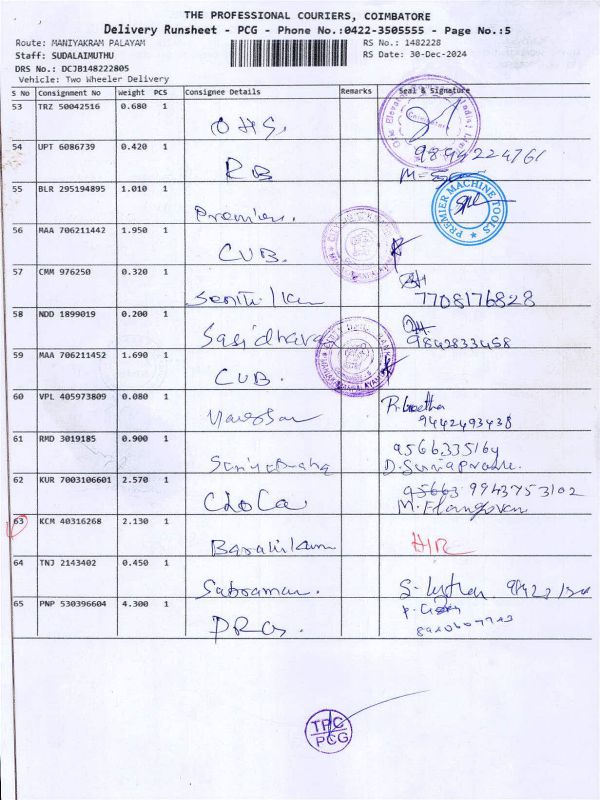 THE PROFESSIONAL COURIERS, COIMBATORE
Delivery Runsheet - PCG - Phone No.:0422-3505555 - Page No.:5
Route: MANIYAKRAM PALAYAM
RS No.: 1482228
Staff: SUDALAIMUTHU
RS Date: 30-Dec-2024
DRS No.: DCJB148222805
Vehicle: Two Wheeler Delivery
S No Consignment No Weight PCS Consignee Details Remarks Seal & Signature
53 TRZ 50042516 0.680 1
OHS.
9894224761
54 UPT 6086739 0.420 1
RB
55 BLR 295194895 1.010 1
Premier.
PREMIER MACHINE TOOLS
56 MAA 706211442 1.950 1
CUB.
57 CMM 976250 0.320 1
7708176828
58 NDD 1899019 0.200 1
Sasidharan
9842833458
59 MAA 706211452 1.690 1
CUB.
60 VPL 405973809 0.080 1
R.Geetha
9442493438
61 RMD 3019185 0.900 1
9566335164
62 KUR 7003106601 2.570 1
9943753102
M. Elangovan
63 KCM 40316268 2.130 1
64 TNJ 2143402 0.450 1
65 PNP 530396604 4.300 1
TPC
PCG